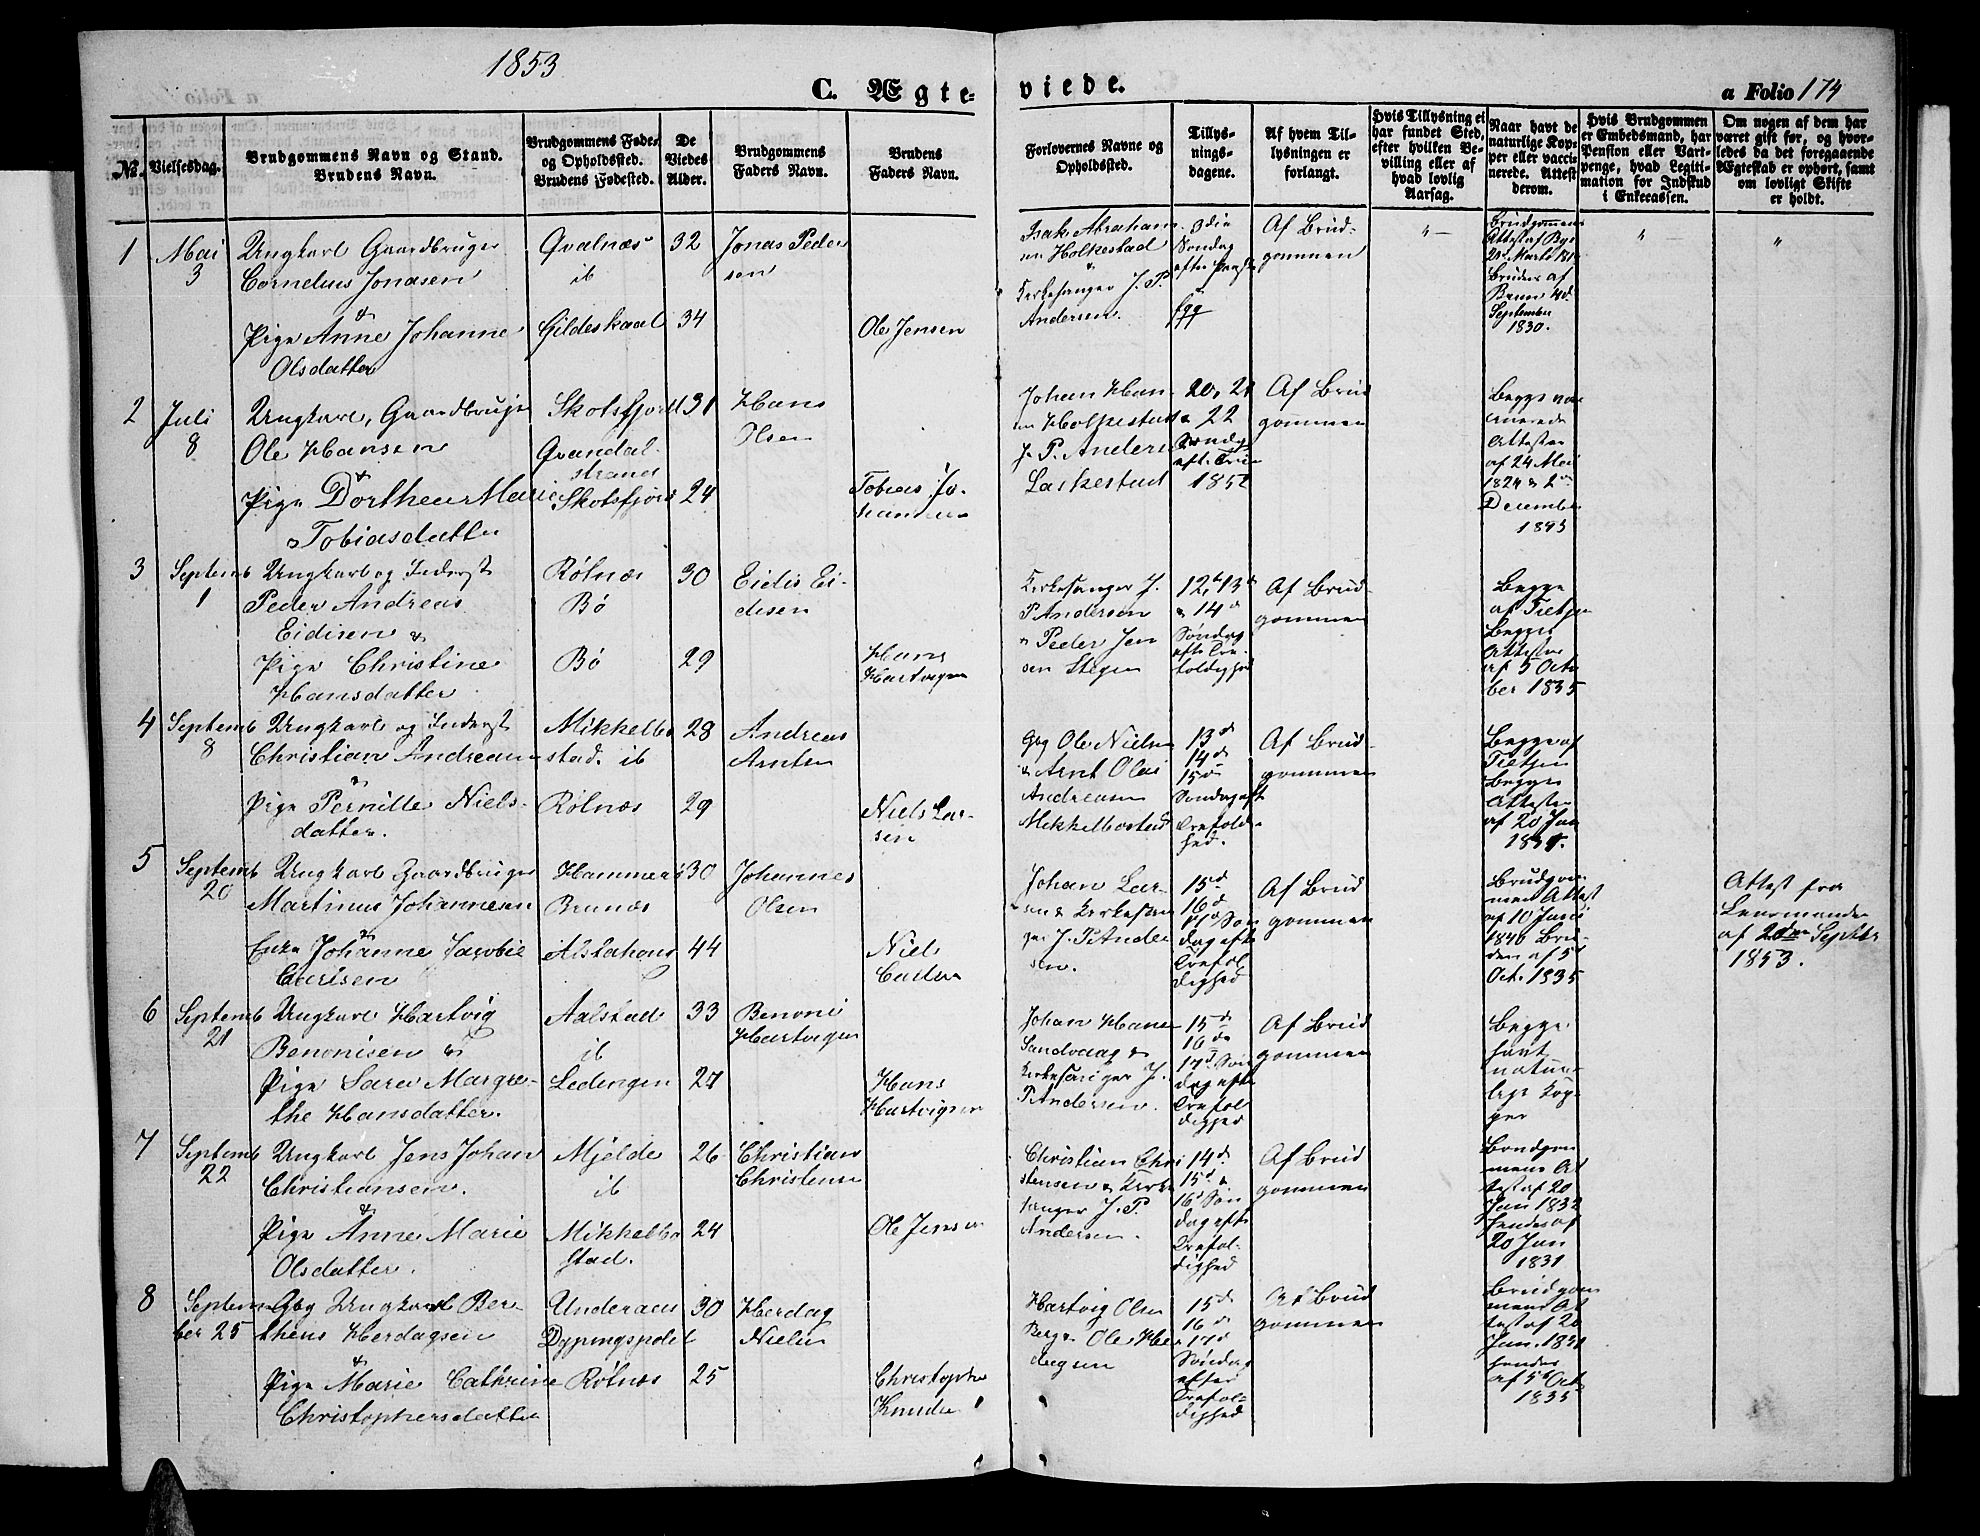 1853
C. Ægte-
viede.
a Folio 174
No.
Vielsesdag.
Brudgommens Navn og Stand.
Brudens Navn.
Brudgommens Føde-
og Opholdssted.
Brudens Fødested.
De
Viedes
Alder.
Brudgommens
Faders Navn.
Brudens
Faders Navn.
Forlovernes Navne og
Opholdssted.
Tillys-
nings-
dagene.
Af hvem Til-
lysningen er
forlangt.
Hvis Tillysning ei
har fundet Sted,
efter hvilken Be-
villing eller af
hvad lovlig
Aarsag.
Naar havt de
naturlige Kop-
per eller vacci-
nerede. Attest
derom.
Hvis Brudgommen
er Embedsmand, har
Pension eller Vart-
penge, hvad Legiti-
mation for Indskud
i Enkecassen.
Om nogen af dem har
været gift før, og hvor-
ledes da det foregaaende
Ægteskab er ophørt, samt
om lovligt Skifte
er holdt.
1
Mai
3
Ungkarl Gaardbruger
Cornelius Jonasen
&
Pige Anne Johanne
Olsdatter
Qvalnæs
ib
Gildeskaal
32
34
Jonas Peder
sen
Ole Jensen
Isak Abraham
Holkestad
&
Kirkesanger J. P.
Andersen.
3die
Søndag
efter
Af Brud-
gommen
Brudgommens
Attest af
Brudens af
4d.
September
1830.
2
Juli
8
Ungkarl, Gaardbruger
Ole Hansen
&
Pige Dorthea Marie
Tobiasdatter
Skotsfjord
Qvandal-
strand
Skotsfjord
31
24
Hans
Olsen
Tobias Jo-
hansen
Johan Han
Holkestad
J. P. Anders
Laskestad
20, 21
& 22
Søndag
eft. Tri
1852
Af Brud
gommen
Begge vac
cinerede
Attester
af 24 Mai
1824 &
December
3
Septemb
1
Ungkarl og Inderst
Peder Andreas
Eidisen &
Pige Christine
Hansdatter
Rølnæs
Bø
Bø
30
29
Eidis Ei-
disen
Hans
Hartvigsen
Kirkesanger J.
P Andersen
& Peder Jen
sen Stegen
12, 13d
& 14d
Søndag
efter Tre-
foldighed
Af Brud-
gommen
Begge
af Tietjen
Begges
Attester
af 5 Octo
ber 1835
4
Septemb
8
Ungkarl og Inderst
Christian Andreasen
&
Pige Pernille Niels-
datter.
Mikkelbo
stad. ib
Rølnæs
28
29
Andreas
Arntsen
Niels Lar-
sen
Gbg Ole Nielsen
& Arnt Olai
Andreasen
Mikkelbostad
13d
14d
15d
Søndag eft
Trefoldig-
hed.
Af Brud-
gommen
Begge af
Tietjen
Begges
Attester
af 20 Jan
1831.
5
Septemb
20
Ungkarl Gaardbruger
Martinus Johannesen
&
Enke Johanne Jacobie
Carlsen
Hammerø
Brunæs
Alstahoug
30
44
Johannes
Olsen
Niels
Carlsen
Johan Lar-
sen & Kirkesan
ger J. P Ander
sen.
15d
16d
17d Søn
dag eft
Trefol
dighed
Af Brud
gommen
Brudgom
mens Attest
af 10 Juni
1840 Bru-
den af 5t
Oct. 1835
Attest fra
Lensmanden
af 20de Septbr
1853.
6
Septemb
21
Ungkarl Hartvig
Benonisen &
Pige Sara Margre-
the Hansdatter.
Aalstad
ib
Lødingen
33
27
Benoni
Hartvigsen
Hans
Hartvigsen
Johan Hansen
Sandvaag &
Kirkesanger J.
P Andersen.
15d
16de
17d Søn
dag efter
Trefol
dighed
Af Brud
gommen
Begge
havt
natur-
lige Kop-
per
7
Septemb
22
Ungkarl Jens Johan
Christiansen.
&
Pige Anne Marie
Olsdatter.
Mjelde
ib
Mikkelbo
stad.
26
24
Christian
Christensen
Ole Jensen
Christian Chri
stensen & Kirke
sanger J. P.
Andersen.
14d
15d &
16d Søn
dag efter
Trefol-
dighed
Af Brud
gommen
Brudgom
mens At
test af 20
Jan 1832
hendes af
20 Jan
1831
8
Septem-
ber 25
Gbg Ungkarl Ber-
theus Herdagsen
&
Pige Marie Cathrine
Christophersdatter
Underaas
Dypingspold
Rølnæs
30
25
Herdag
Nielsen
Christopher
Knudsen
Hartvig Olsen
Berge Ole Her
dagsen
15d
16d
& 17d
Søndag
efter
Trefol-
dighed
Af Brud
gommen
Brudgom
mens At
test af 20
Jan. 1831
hendes
af 5t Oct.
1835